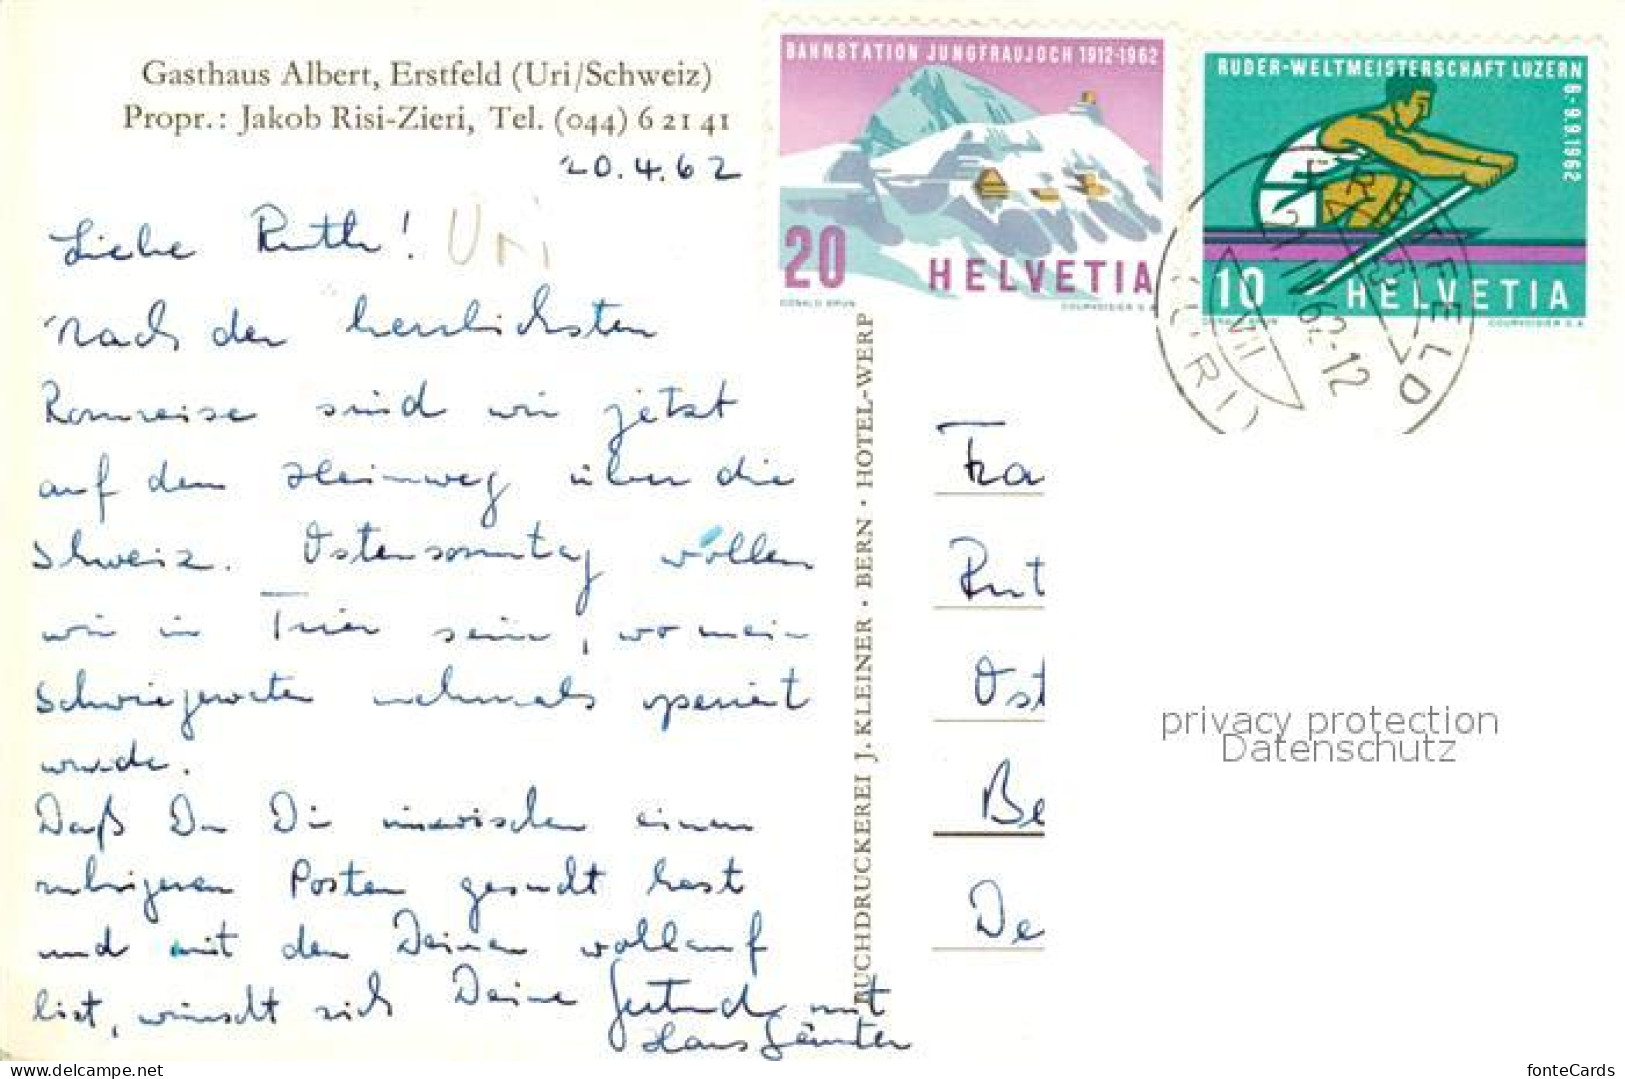 Gasthaus Albert, Erstfeld (Uri/Schweiz)
Propr.: Jakob Risi-Zieri, Tel. (044) 6 21 41
20.4.62
Liebe Ruth! Uri
nach der herrlichsten
Romreise sind wir jetzt
auf dem Heimweg über die
Schweiz. Ostersonntag wollen
wir in Trier sein, wo mein
Schwiegervater nochmals operiert
wurde.
Daß Du Dir inzwischen einen
ruhigeren Posten gesucht hast
und mit den Deinen wohlauf
bist, wünscht sich Deine Gertrud mit
Hans Günter
BUCHDRUCKEREI J. KLEINER · BERN · HOTEL-WERP
BAHNSTATION JUNGFRAUJOCH 1912-1962
20 HELVETIA
DONALD BRUN COURVOISIER S.A.
RUDER-WELTMEISTERSCHAFT LUZERN
6.-9.9.1962
10 HELVETIA
DONALD BRUN COURVOISIER S.A.
ERSTFELD
21.IV.62-12
(URI)
Fra
Rut
Ost
Be
De
privacy protection
Datenschutz
www.delcampe.net
fonteCards